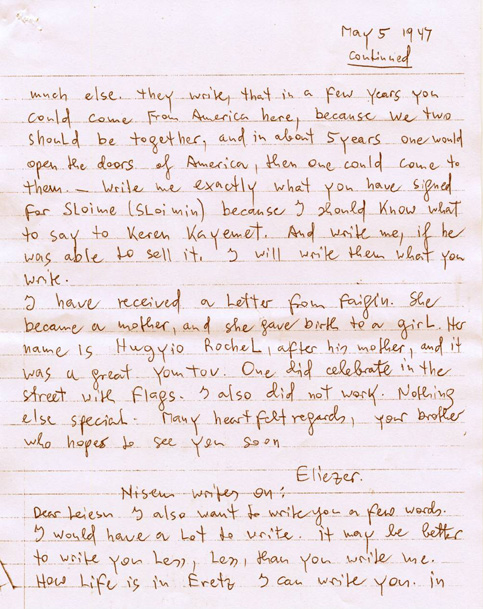 May 5 1947
continued
much else. they write, that in a few years you
could come from America here, because we two
should be together, and in about 5 years one would
open the doors of America, then one could come to
them. — Write me exactly what you have signed
for SLoime (SLoimin) because I should know what
to say to Keren Kayemet. And write me, if he
was able to sell it. I will write them what you
write.
I have received a Letter from Faigin. She
became a mother, and she gave birth to a girl. Her
name is Hugyio RocheL, after his mother, and it
was a great yomtov. One did celebrate in the
street with flags. I also did not work. Nothing
else special. Many heartfelt regards, your brother
who hopes to see you soon
Eliezer.
Nisem writes on:
Dear Leiesn I also want to write you a few words.
I would have a Lot to write. it may be better
to write you Less, Less, than you write me.
How Life is in Eretz I can write you. in